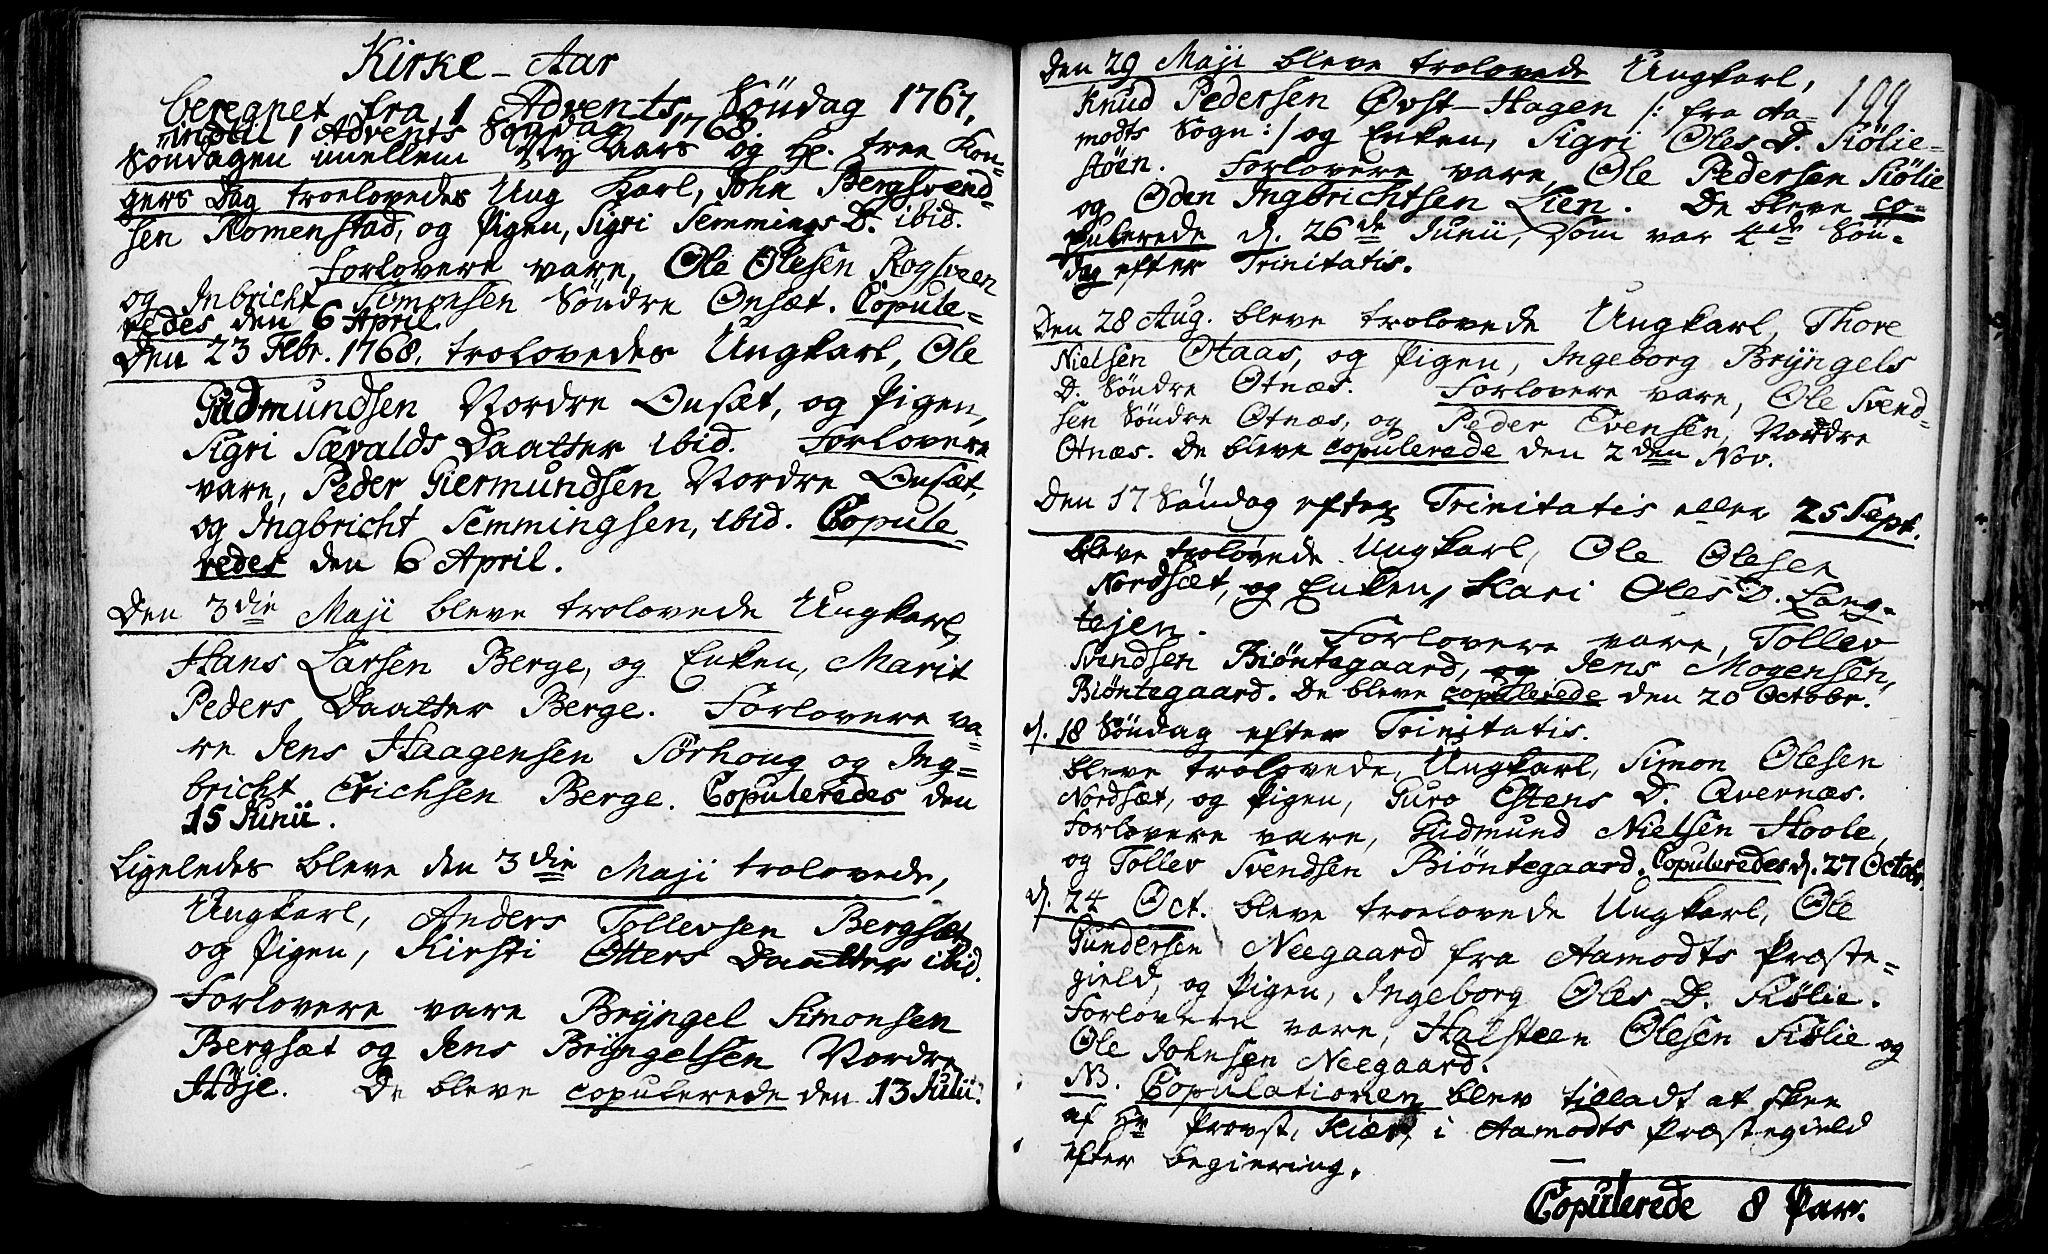 Kirke-Aar
beregnet fra 1 Advents Søndag 1767,
indtil 1 Advents Søndag 1768.
Søndagen imellem Ny Aars og H. tree Kon-
gers Dag troelovedes Ung Karl, John Bergsvend-
sen Romenstad, og Pigen, Sigri Semmings D. ibid.
Forlovere vare, Ole Olesen Rogsveen
og Inbricht Simonsen Søndre Onsæt. Copule-
redes den 6 April.
Den 23 Febr. 1768, trolovedes Ungkarl, Ole
Gudmundsen Nordre Onsæt, og Pigen,
Sigri Sævalds Daatter ibid. Forlovere
vare, Peder Giermundsen Nordre Onsæt,
og Ingbricht Semmingsen, ibid. Copule-
redes den 6 April.
Den 3die Maji bleve trolovede Ungkarl,
Hans Larsen Berge, og Enken, Marit
Peders Daatter Berge. Forlovere va-
re Jens Haagensen Sørhoug og Ing-
bricht Erichsen Berge. Copuleredes den
15 Junii.
Ligeledes bleve den 3die Maji trolovede,
Ungkarl, Anders Tollevsen Bergsæt
og Pigen, Kirsti Otters Daatter ibid.
Forlovere vare Bryngel Simonsen
Bergsæt og Jens Bryngelsen Nordre
Høje. De bleve copulerede den 13 Julii.
199
Den 29 Maji bleve trolovede Ungkarl,
Knud Pedersen Øvst-Hagen /: fra Aa-
modts Sogn :/ og Enken, Sigri Oles D. Kiølie-
støen. Forlovere vare, Ole Pedersen Kiølie
og Oden Ingbrichtsen Lien. De bleve co-
pulerede d. 26de Junii, som var 4de Søn-
dag efter Trinitatis.
Den 28 Aug. bleve trolovede Ungkarl, Thore
Nielsen Otaas, og Pigen, Ingeborg Bryngels
D. Søndre Otnæs. Forlovere vare, Ole Svend-
sen Søndre Otnæs, og Peder Evensen, Nordre
Otnæs. De bleve copulerede den 2den Nov.
Den 17 Søndag efter Trinitatis eller 25 Sept.
bleve trolovede Ungkarl, Ole Olesen
Nordsæt, og Enken, Kari Oles D. Lang-
tejen. Forlovere vare, Tollev
Svendsen Biøntegaard, og Jens Mogensen,
Biøntegaard. De bleve copulerede den 20 Octobr.
d. 18 Søndag efter Trinitatis.
bleve trolovede, Ungkarl, Simon Olesen
Nordsæt, og Pigen, Guro Estens D. Qvernæs.
Forlovere vare, Gudmund Nielsen Hoole,
og Tollev Svendsen Biøntegaard. Copuleredes d. 27 Octobr.
d. 24 Oct. bleve troelovede Ungkarl, Ole
Gundersen Neegaard fra Aamodts Præste-
gield, og Pigen, Ingeborg Oles D. Kiølie.
Forlovere vare, Halsteen Olesen Kiølie og
Ole Johnsen Neegaard.
NB. Copulationen blev tilladt at skee
af Hr Provst, Kiær, i Aamodts Præstegield
efter begiering.
Copulerede 8 Par.